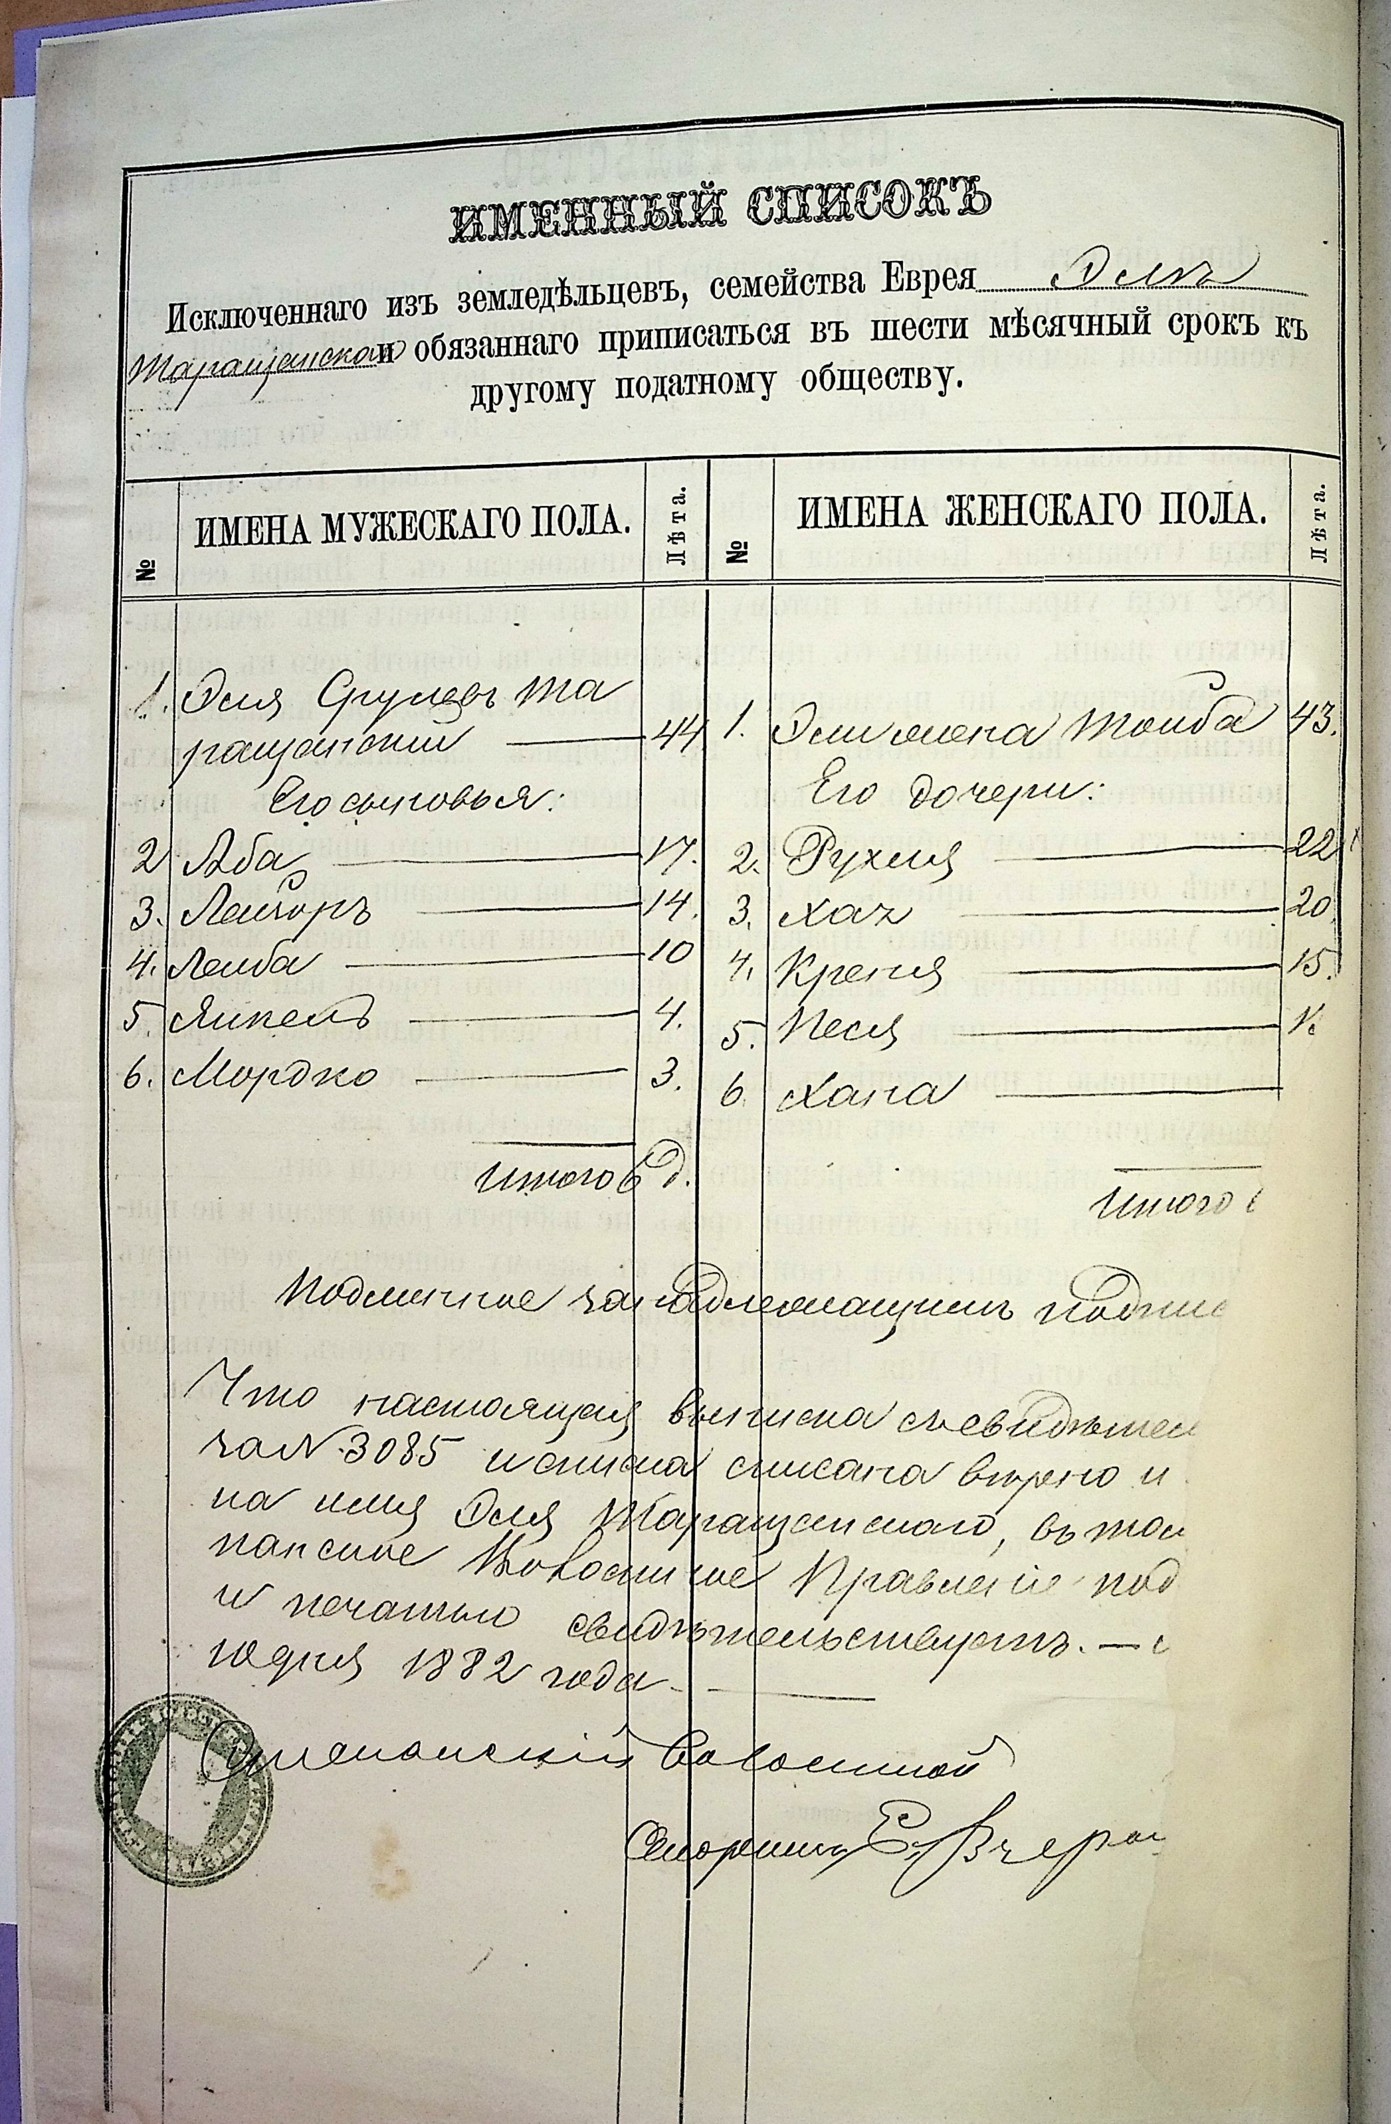 ИМЕННЫЙ СПИСОКЪ
Исключеннаго изъ земледѣльцевъ, семейства Еврея Эля
Таращанскаго и обязаннаго приписаться въ шести мѣсячный срокъ къ
другому податному обществу.
№ ИМЕНА МУЖЕСКАГО ПОЛА. Лѣта. № ИМЕНА ЖЕНСКАГО ПОЛА. Лѣта.
1. Эля Срулевъ Та
ращанский 44 1. Эли жена Тойба 43.
Его сыновья: Его дочери:
2 Аба 17. 2. Рухля 22
3. Лейзоръ 14. 3. Хая 20.
4. Лейба 10 4. Крейня 15.
5. Янкель 4. 5. Песя
6. Мордко 3. 6. Хана
Итого 6 д. Итого
Подлинное за надлежащимъ подпис
Что настоящая выписка съ свидѣтел
за N. 3085 и списка списана вѣрно и
на имя Эля Таращанскаго, въ том
Волостное Правленіе под
и печатью свидѣтельствуетъ. —
юдня 1882 года
Степанскій Волостной
Старшина Е.